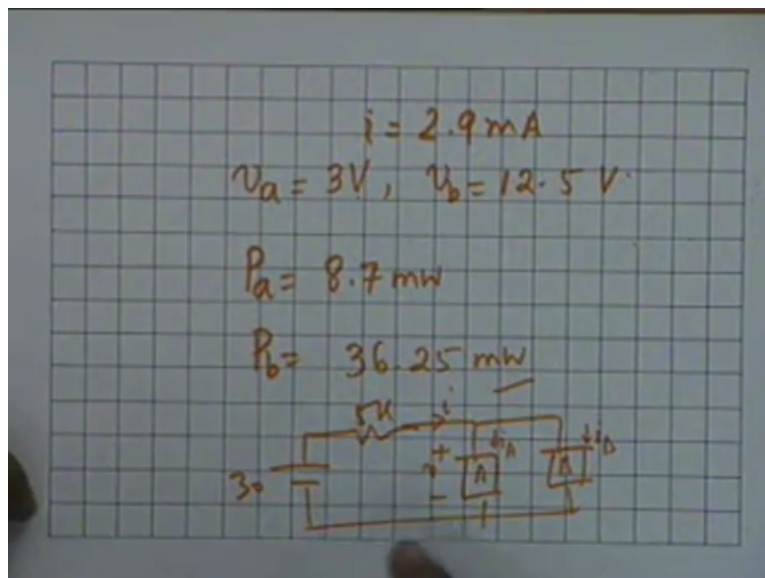 i = 2.9 mA
va = 3V, vb = 12.5 V
Pa = 8.7 mw
Pb = 36.25 mw
5K i
30 + v - A iA A